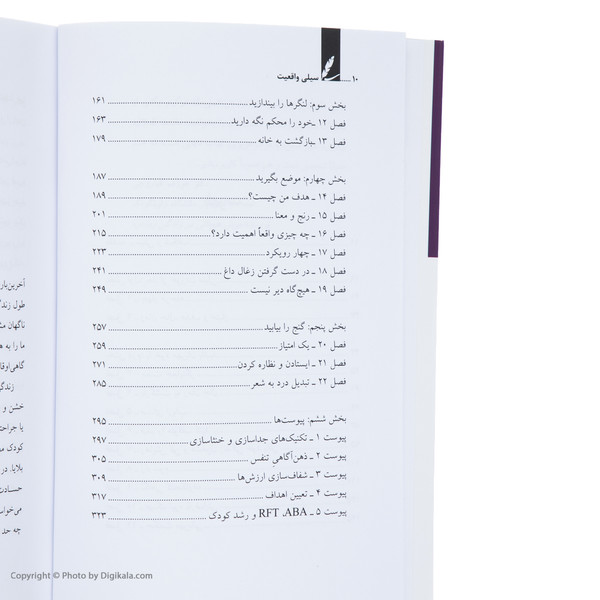 ۱۰ سیلی واقعیت
بخش سوم: لنگرها را بیندازید ۱۶۱
فصل ۱۲ ـ خود را محکم نگه دارید ۱۶۳
فصل ۱۳ ـ بازگشت به خانه ۱۷۹
بخش چهارم: موضع بگیرید ۱۸۷
فصل ۱۴ ـ هدف من چیست؟ ۱۸۹
فصل ۱۵ ـ رنج و معنا ۲۰۱
فصل ۱۶ ـ چه چیزی واقعاً اهمیت دارد؟ ۲۱۵
فصل ۱۷ ـ چهار رویکرد ۲۲۳
فصل ۱۸ ـ در دست گرفتن زغال داغ ۲۴۱
فصل ۱۹ ـ هیچ‌گاه دیر نیست ۲۴۹
بخش پنجم: گنج را بیابید ۲۵۷
فصل ۲۰ ـ یک امتیاز ۲۵۹
فصل ۲۱ ـ ایستادن و نظاره کردن ۲۷۱
فصل ۲۲ ـ تبدیل درد به شعر ۲۸۵
بخش ششم: پیوست‌ها ۲۹۵
پیوست ۱ ـ تکنیک‌های جداسازی و خنثاسازی ۲۹۷
پیوست ۲ ـ ذهن‌آگاهی تنفس ۳۰۵
پیوست ۳ ـ شفاف‌سازی ارزش‌ها ۳۰۹
پیوست ۴ ـ تعیین اهداف ۳۱۷
پیوست ۵ ـ RFT ،ABA و رشد کودک ۳۲۳
آخرین‌بار
طول زندگ
ناگهان
ما را به
گاهی‌اوقا
زندگ
خشن و
یا جراحت
کودک
بلایا. در
حسادت
می‌خواس
چه حد
Copyright © Photo by Digikala.com